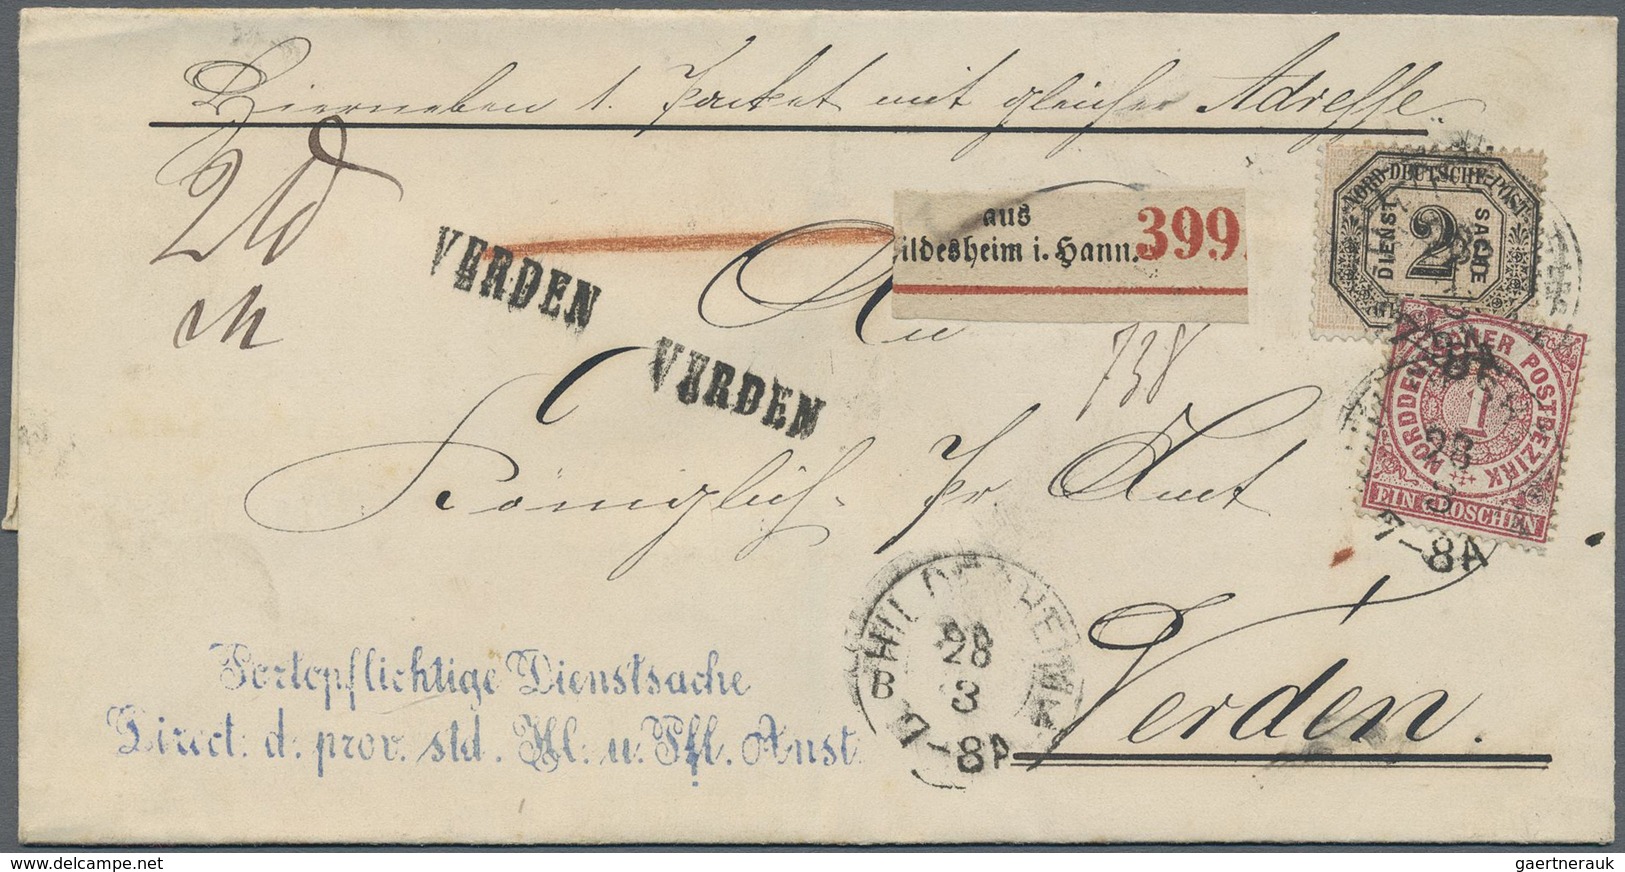 Hierneben 1. Packet mit gleicher Adresse.
2 ℔
aus
ildesheim i. Hann. 399.
NORD-DEUTSCHE-POST
DIENST 2 SACHE
NORDDEUTSCHER POSTBEZIRK
1
EIN GROSCHEN
VERDEN
VERDEN
An
738
Königlich. Pr. Amt
Verden.
HILDESHEIM
B
28
3
7-8A
28
3
7-8A
Portopflichtige Dienstsache
Direct. d. prov. std. Hl. u. Pfl. Anst.
www.delcampe.net
gaertnerauk